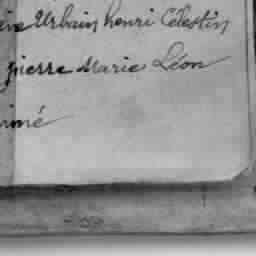 Urbain henri Célestin
pierre Marie Léon